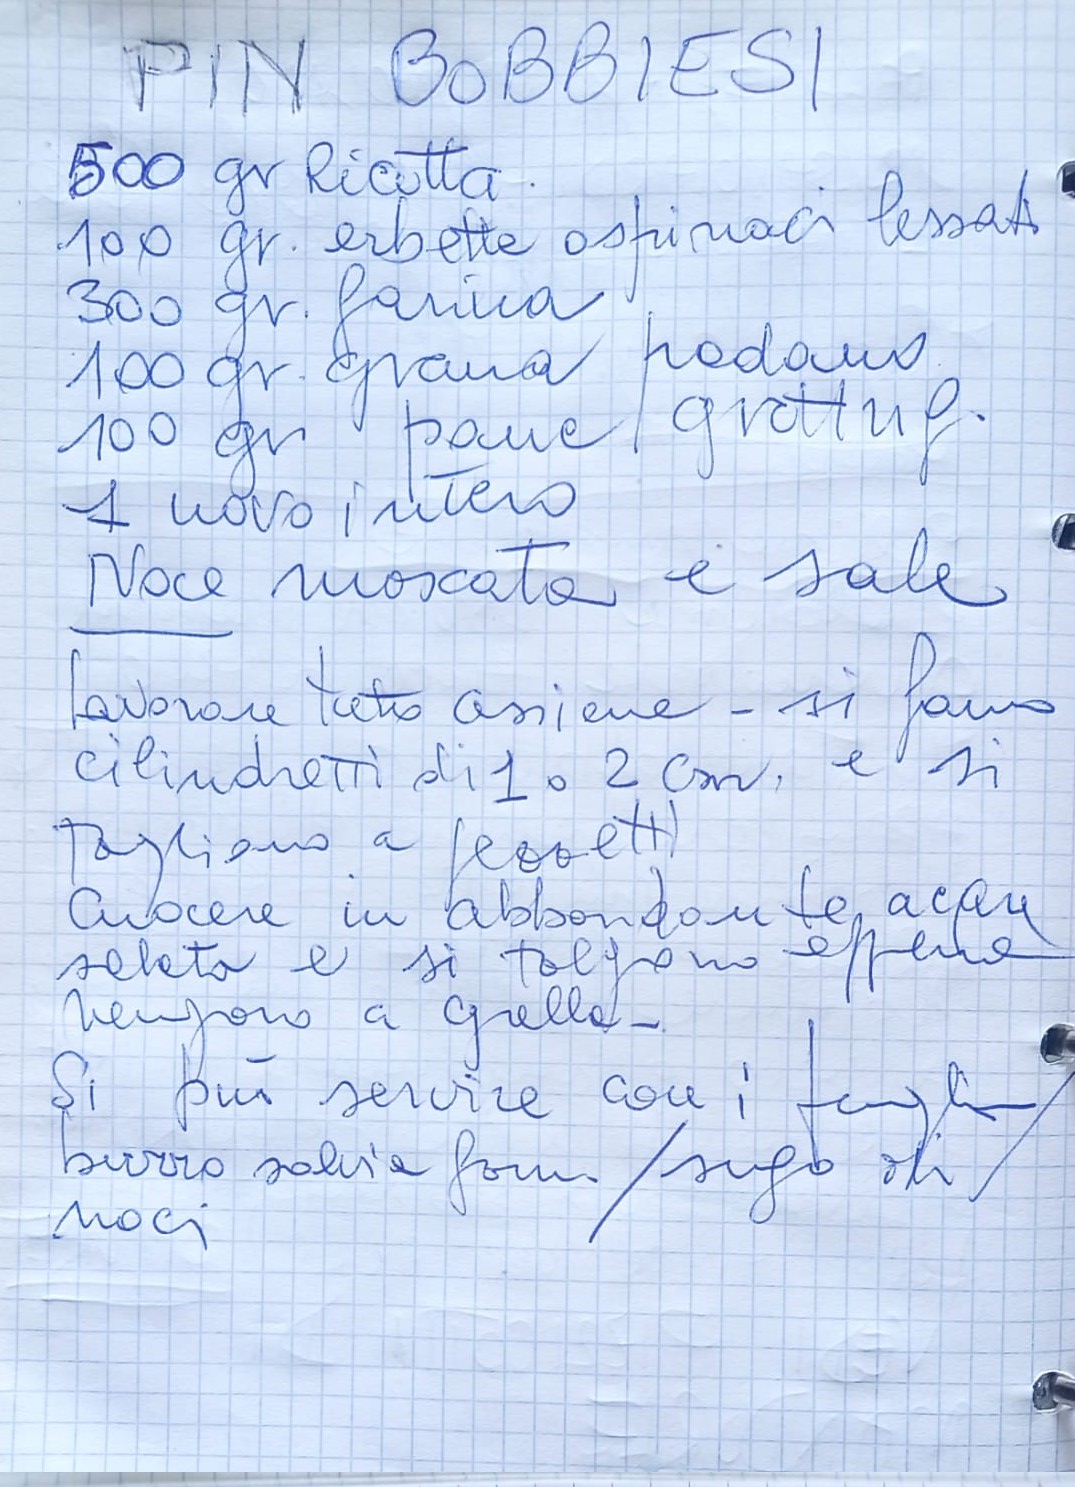 PIN BOBBIESI
500 gr Ricotta.
100 gr. erbette o spinaci lessati
300 gr. farina
100 gr. grana padano
100 gr pane grattug.
1 uovo intero
Noce moscata e sale
Lavorare tutto assieme - si fanno
cilindretti di 1 o 2 cm. e si
tagliano a pezzetti
Cuocere in abbondante acqua
salata e si tolgono appena
vengono a galla -
Si può servire con i funghi /
burro salvia form. / sugo di
noci